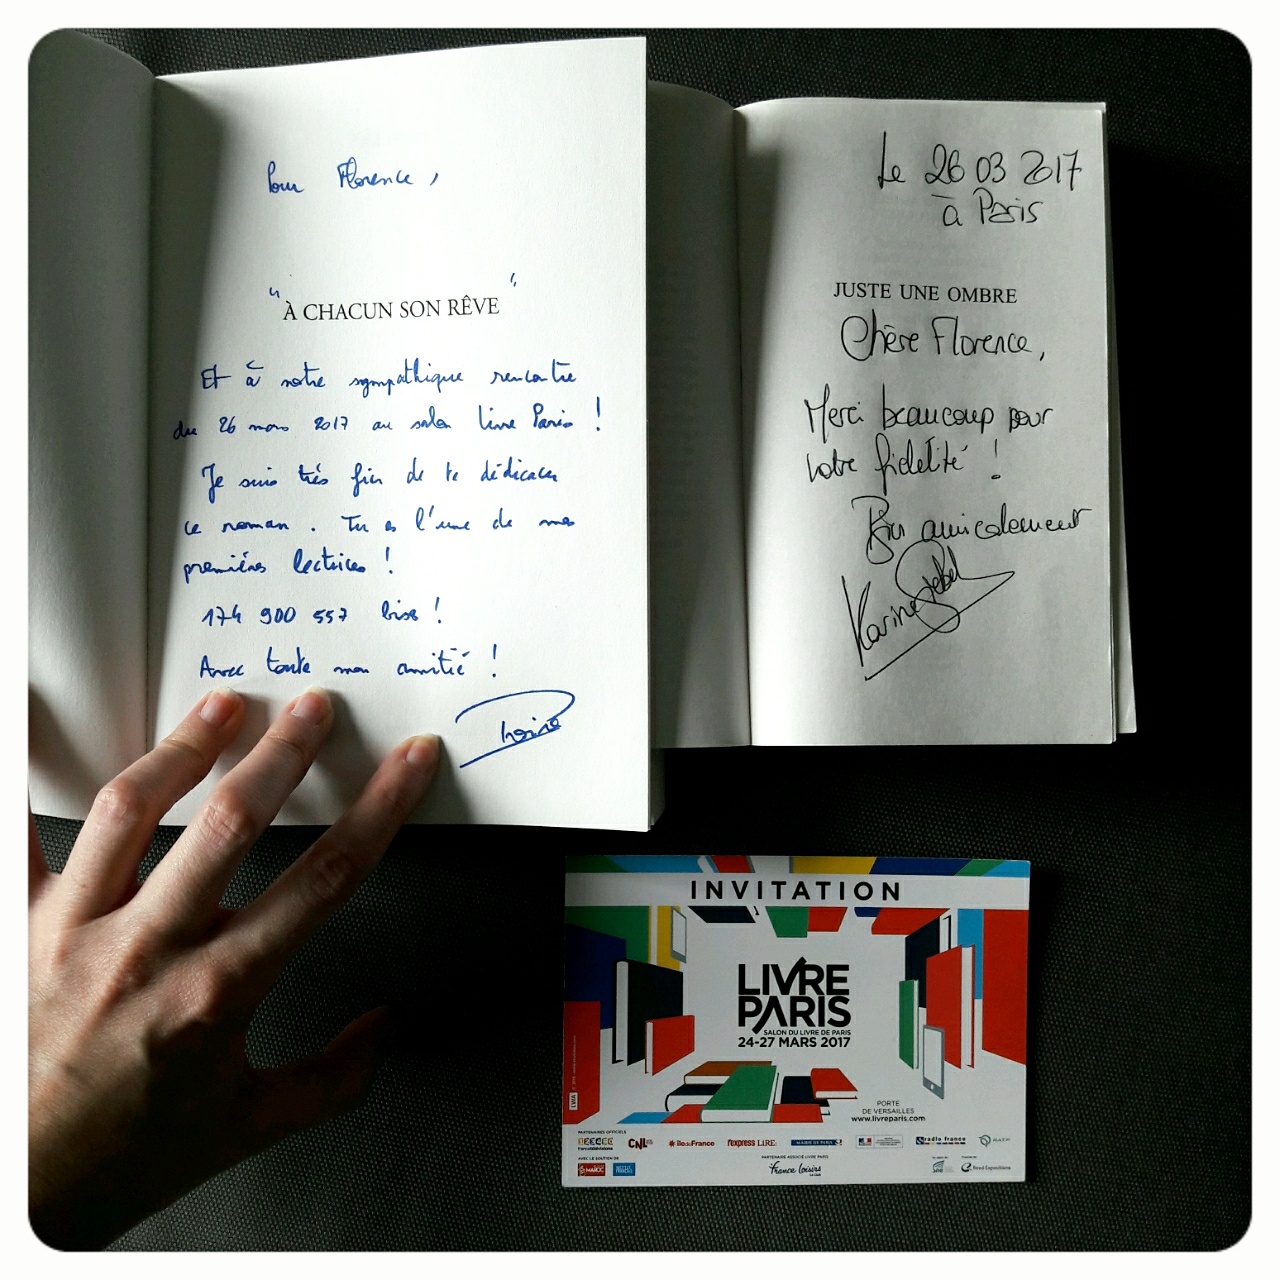 Pour Florence,
" À CHACUN SON RÊVE "
Et à notre sympathique rencontre
du 26 mars 2017 au salon livre Paris !
Je suis très fier de te dédicacer
ce roman. Tu es l'une de mes
premières lectrices !
174 900 557 bises !
Avec toute mon amitié !
Le 26 03 2017
à Paris
JUSTE UNE OMBRE
Chère Florence,
Merci beaucoup pour
votre fidélité !
Bien amicalement
Karine Giebel
INVITATION
LIVRE
PARIS
SALON DU LIVRE DE PARIS
24-27 MARS 2017
PORTE
DE VERSAILLES
www.livreparis.com
PARTENAIRES OFFICIELS
francetélévisions
CNL
île de France
l'express LIRE
MAIRIE DE PARIS
radio france
RATP
AVEC LE SOUTIEN DE
PARTENAIRE ASSOCIÉ LIVRE PARIS
MAROC
France Loisirs
Reed Expositions